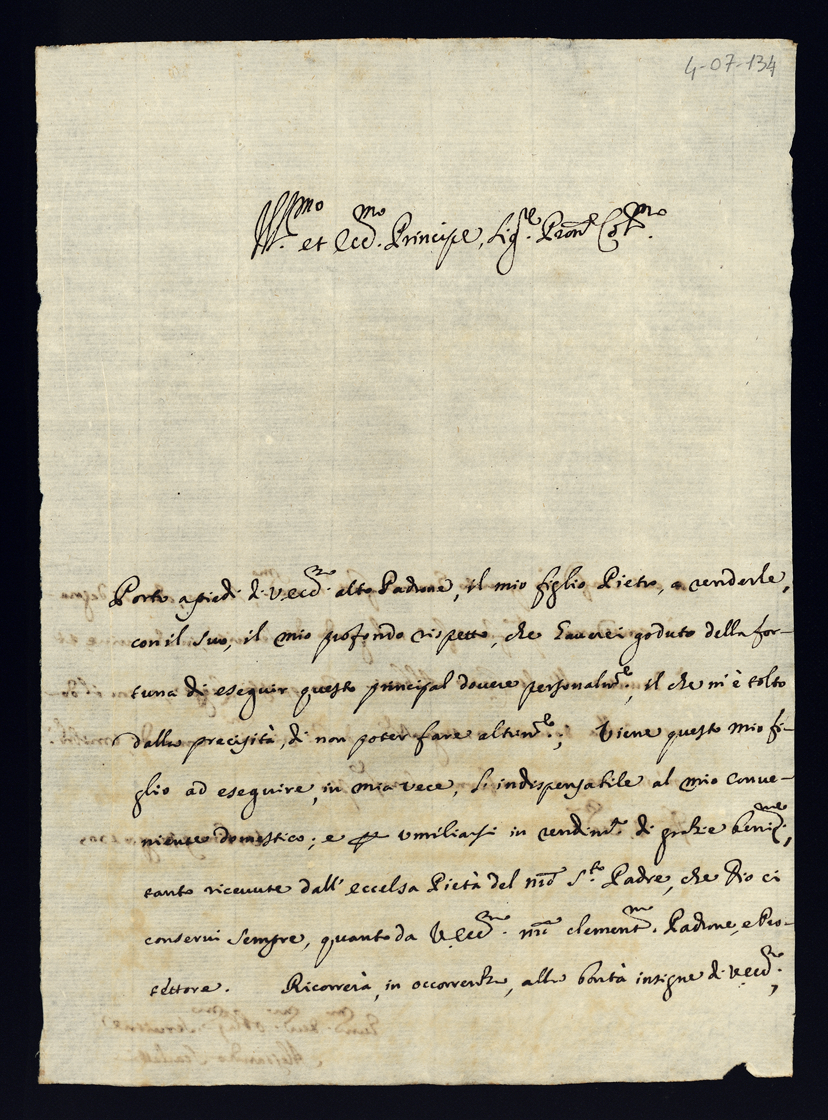 4-07-134
Ill.mo et Ecc.mo Principe, Sig.re Pron.e Col.mo
Porto a piedi di V. Ecc.za alto Padrone, il mio figlio Pietro, a renderle,
con il suo, il mio profondo rispetto, che haverei goduto della for-
tuna di eseguir questo principal dovere personalm.te, il che m'è tolto
dalla precisità, di non poter fare altrim.te; Viene questo mio fi-
glio ad eseguire, in mia vece, l'indispensabile al mio conve-
niente domestico; e p umiliarsi in rendim.to di grazie benig.me,
tanto ricevute dall'eccelsa Pietà del nro S.to Padre, che Dio ci
conservi sempre, quanto da V. Ecc.za mio clement.mo Padrone, e Pro-
tettore. Ricorrerà, in occorrenza, alla bontà insigne di V. Ecc.za,